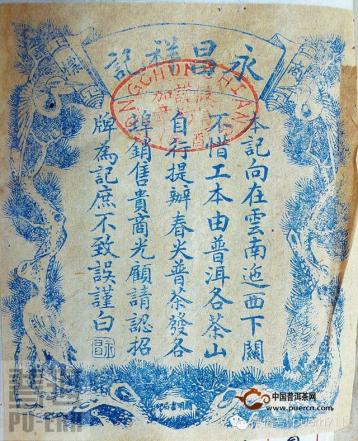 永昌祥記
商
標
本記向在雲南迤西下關
不惜工本由普洱各茶山
自行提辦春尖普茶發各
埠銷售貴商光顧請認招
牌為記庶不致誤謹白
PU-ERH
中国普洱茶网
www.puercn.com